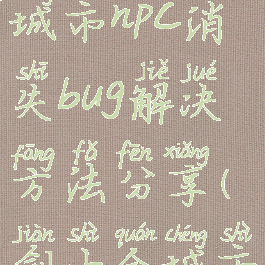 城市npc消
shī jiě jué
失bug解决
fāng fǎ fēn xiǎng
方法分享(
jiàn shì quán chéng shì
剑士全城市